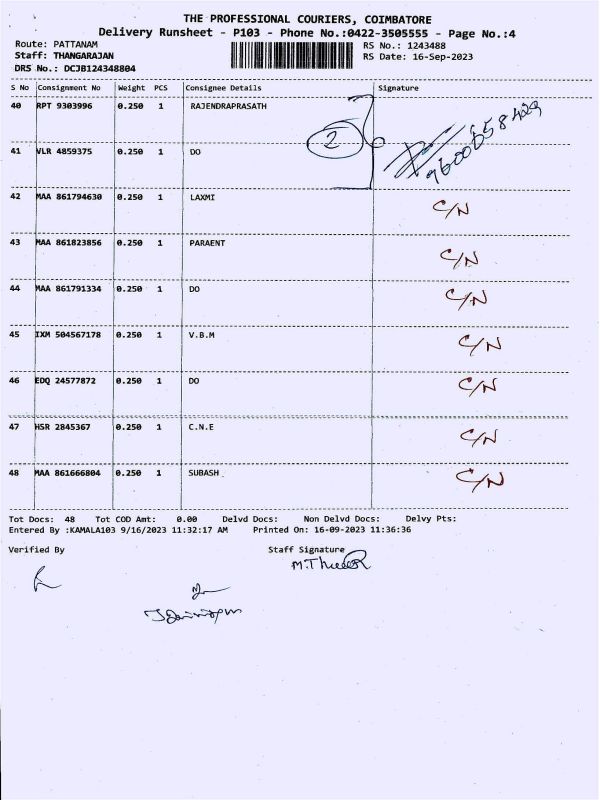 THE PROFESSIONAL COURIERS, COIMBATORE
Delivery Runsheet - P103 - Phone No.:0422-3505555 - Page No.:4
Route: PATTANAM RS No.: 1243488
Staff: THANGARAJAN RS Date: 16-Sep-2023
DRS No.: DCJB124348804
S No Consignment No Weight PCS Consignee Details Signature
40 RPT 9303996 0.250 1 RAJENDRAPRASATH
2
41 VLR 4859375 0.250 1 DO
42 MAA 861794630 0.250 1 LAXMI C/N
43 MAA 861823856 0.250 1 PARAENT C/N
44 MAA 861791334 0.250 1 DO C/N
45 IXM 504567178 0.250 1 V.B.M C/N
46 EDQ 24577872 0.250 1 DO C/N
47 HSR 2845367 0.250 1 C.N.E C/N
48 MAA 861666804 0.250 1 SUBASH C/N
Tot Docs: 48 Tot COD Amt: 0.00 Delvd Docs: Non Delvd Docs: Delvy Pts:
Entered By :KAMALA103 9/16/2023 11:32:17 AM Printed On: 16-09-2023 11:36:36
Verified By Staff Signature